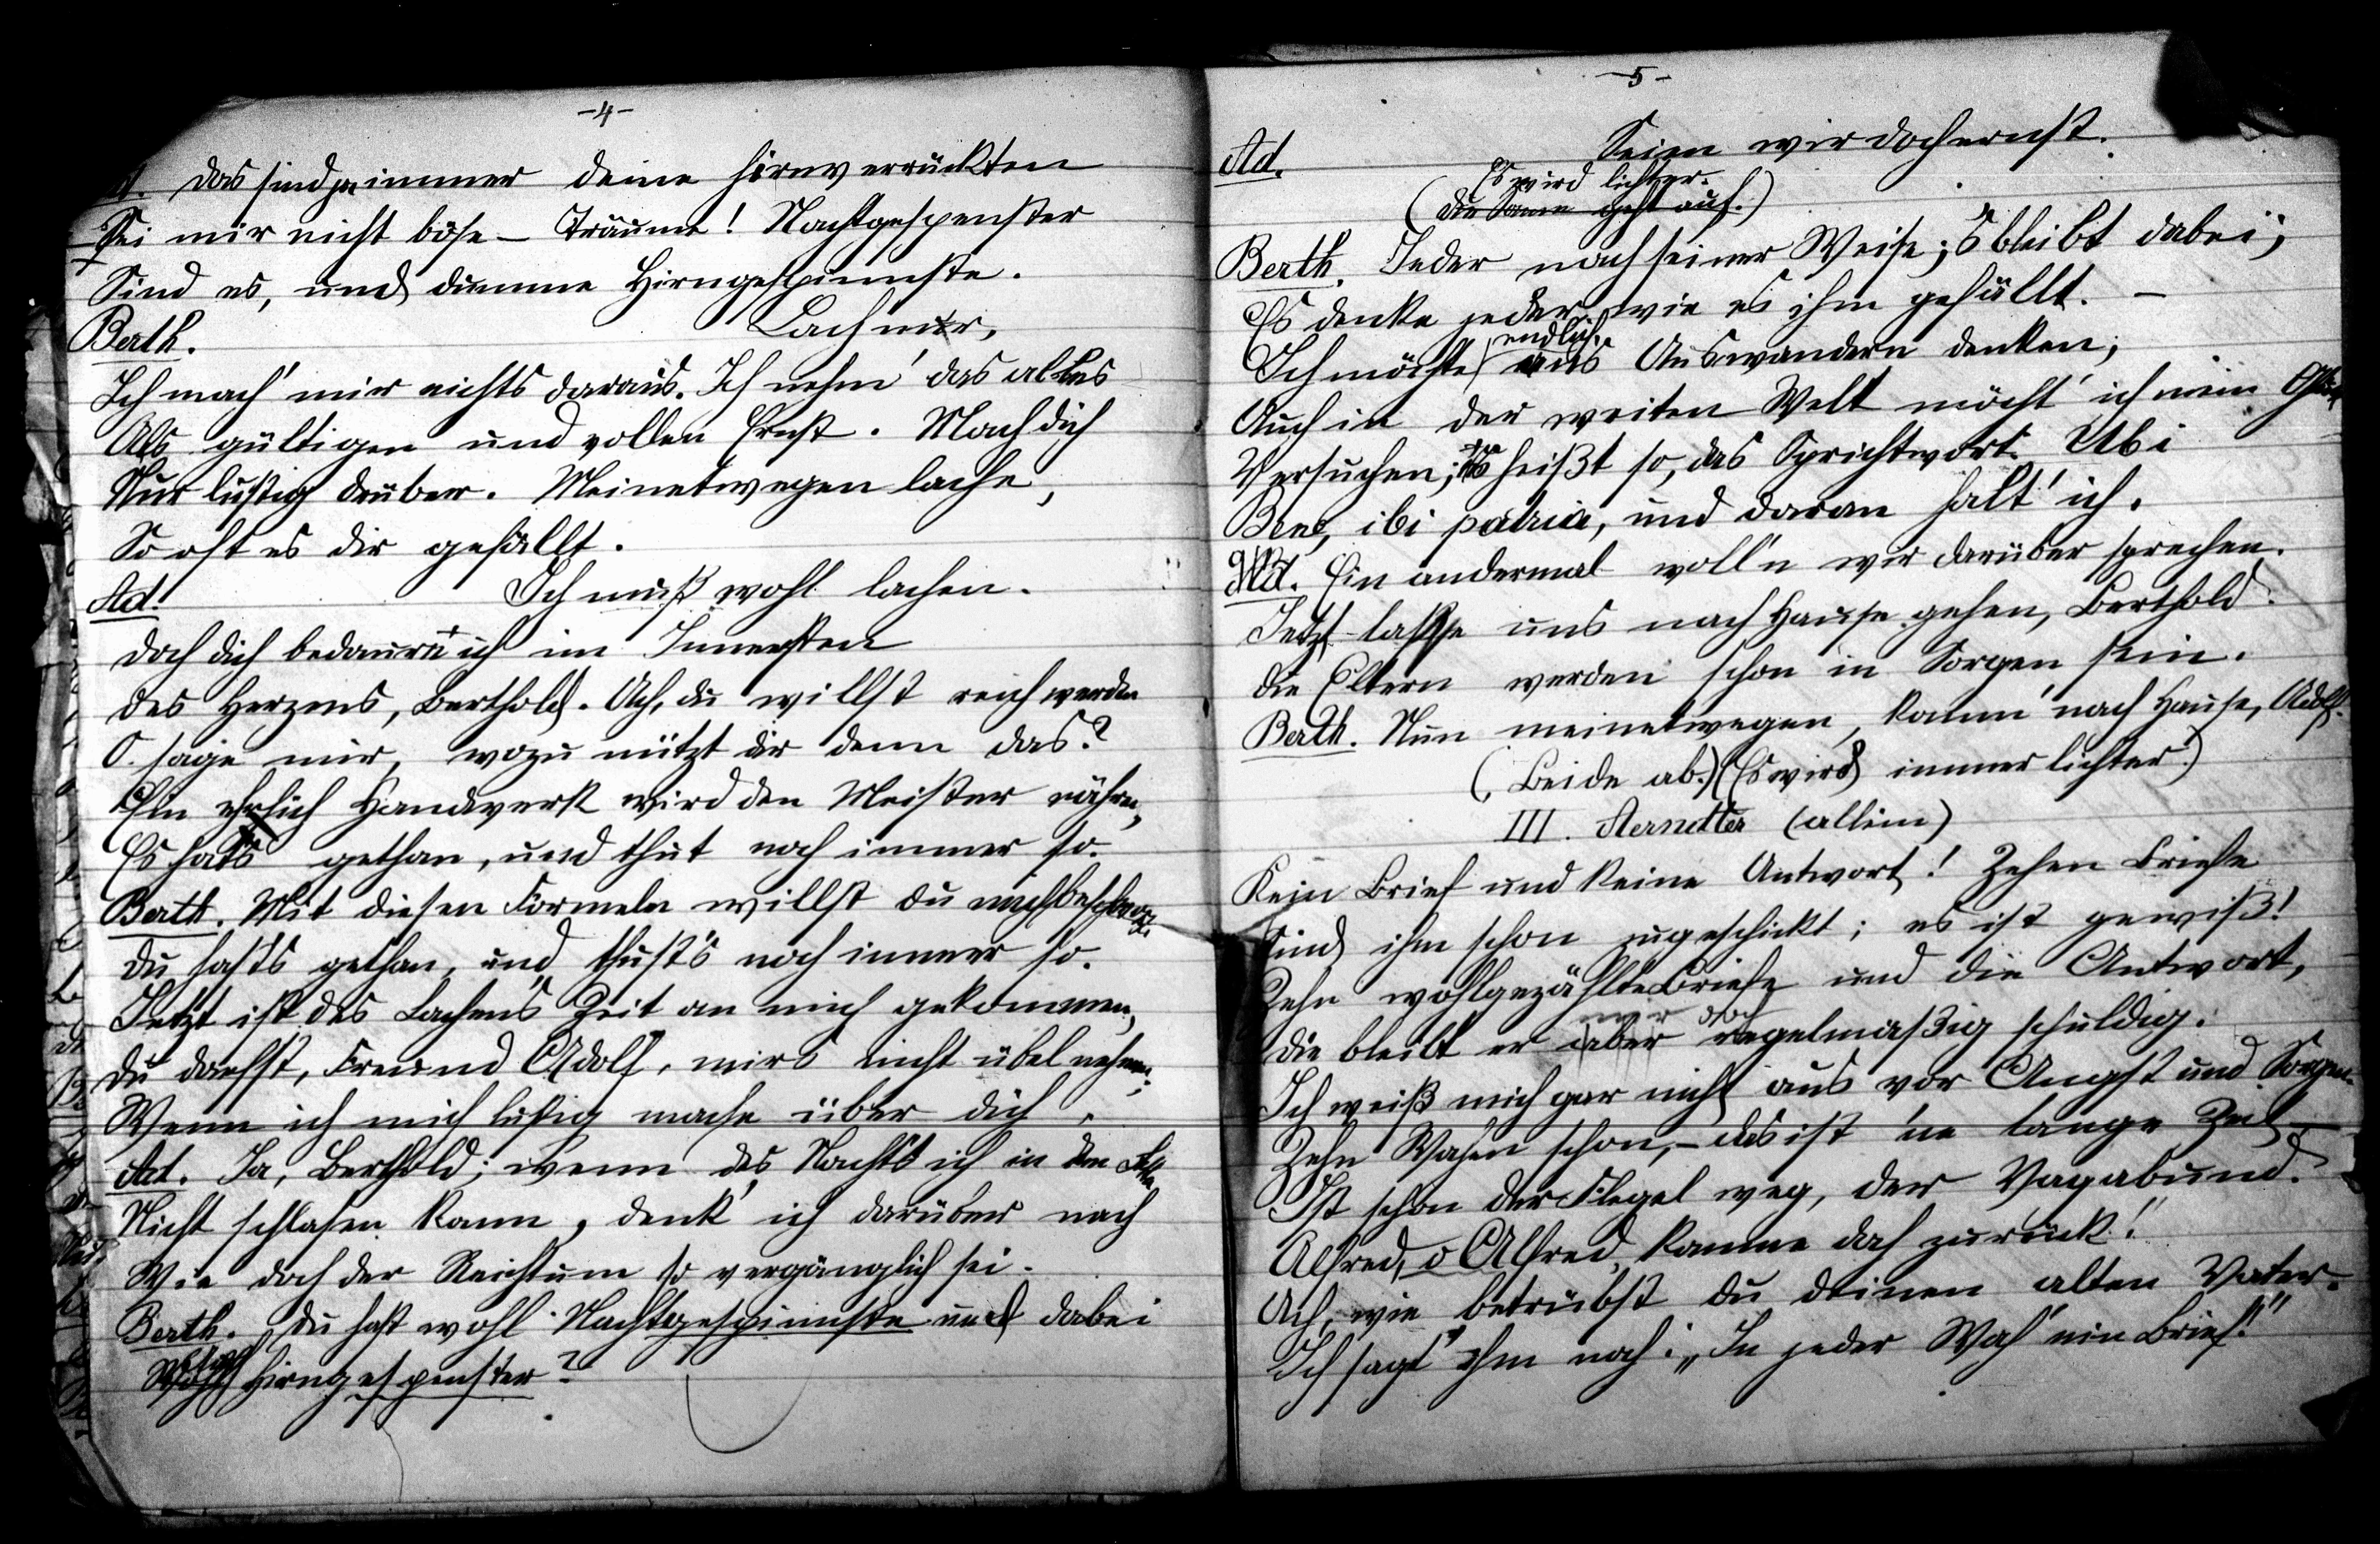 -4-
Ad. Das sind ja immer deine hirnverrückten
Sei mir nicht böse – Träume! Nachtgespenster
Sind es, und dumme Hirngespinnste.
Berth. Lach nur,
Ich mach' mir nichts daraus. Ich nehm' das alles
Als gültigen und vollen Ernst. Mach dich
Nur lustig drüber. Meinetwegen lache,
So oft es dir gefällt.
Ad. Ich muß wohl lachen.
Doch dich bedaure ich im Innersten
Des Herzens, Berthold. Ach, du willst reich werden
O sage mir, wozu nützt dir denn das?
Ein ehrlich Handwerk wird den Meister nähren,
Es hat's gethan, und thut noch immer so.
Berth. Mit diesen Formeln willst du mich
Du hast's gethan, und thust's noch immer so.
Jetzt ist des Lachens Zeit an mich gekommen,
Du darfst, Freund Adolf, mirs nicht übel nehmen,
Wenn ich mich lustig mache über dich.
Ad. Ja, Berthold; wenn des Nachts ich in den
Nicht schlafen kann, denk' ich darüber nach
Wie doch der Reichtum so vergänglich sei.
Berth. Du hast wohl Nachtgespinnste und dabei
Hirngespenster?
-5-
Ad. Seien wir doch ernst.
Es wird lichter.
(Die Sonne geht auf.)
Berth. Jeder nach seiner Weise; 's bleibt dabei;
Es denke jeder, wie es ihm gefällt. –
endlich
Ich möchte ans Auswandern denken;
Auch in der weiten Welt möcht' ich mein Glück
Versuchen; heißt so, das Sprichtwort: Ubi
Bene, ibi patria, und daran halt' ich.
Ad. Ein andermal woll'n wir darüber sprechen.
Jetzt lasse uns nach Hause gehen, Berthold.
Die Eltern werden schon in Sorgen sein.
Berth. Nun meinetwegen, komm' nach Hause, Adolf.
(Beide ab.) (Es wird immer lichter.)
III. Aernetter (allein)
Kein Brief und keine Antwort! Zehen Briefe
Sind ihm schon zugeschickt; es ist gewiß!
Zehn wohlgezählte Briefe und die Antwort,
mir doch
Die bleibt er aber regelmaßig schuldig.
Ich weiß mich gar nicht aus vor Angst und Sorgen.
Zehn Wochen schon, – das ist 'ne lange Zeit –
Ist schon der Flegel weg, der Vagabund.
Alfred, o Alfred, komme doch zurück!
Ach, wie betrübst du deinen alten Vater.
Ich sagt' ihm noch: „In jeder Woch' ein Brief!"